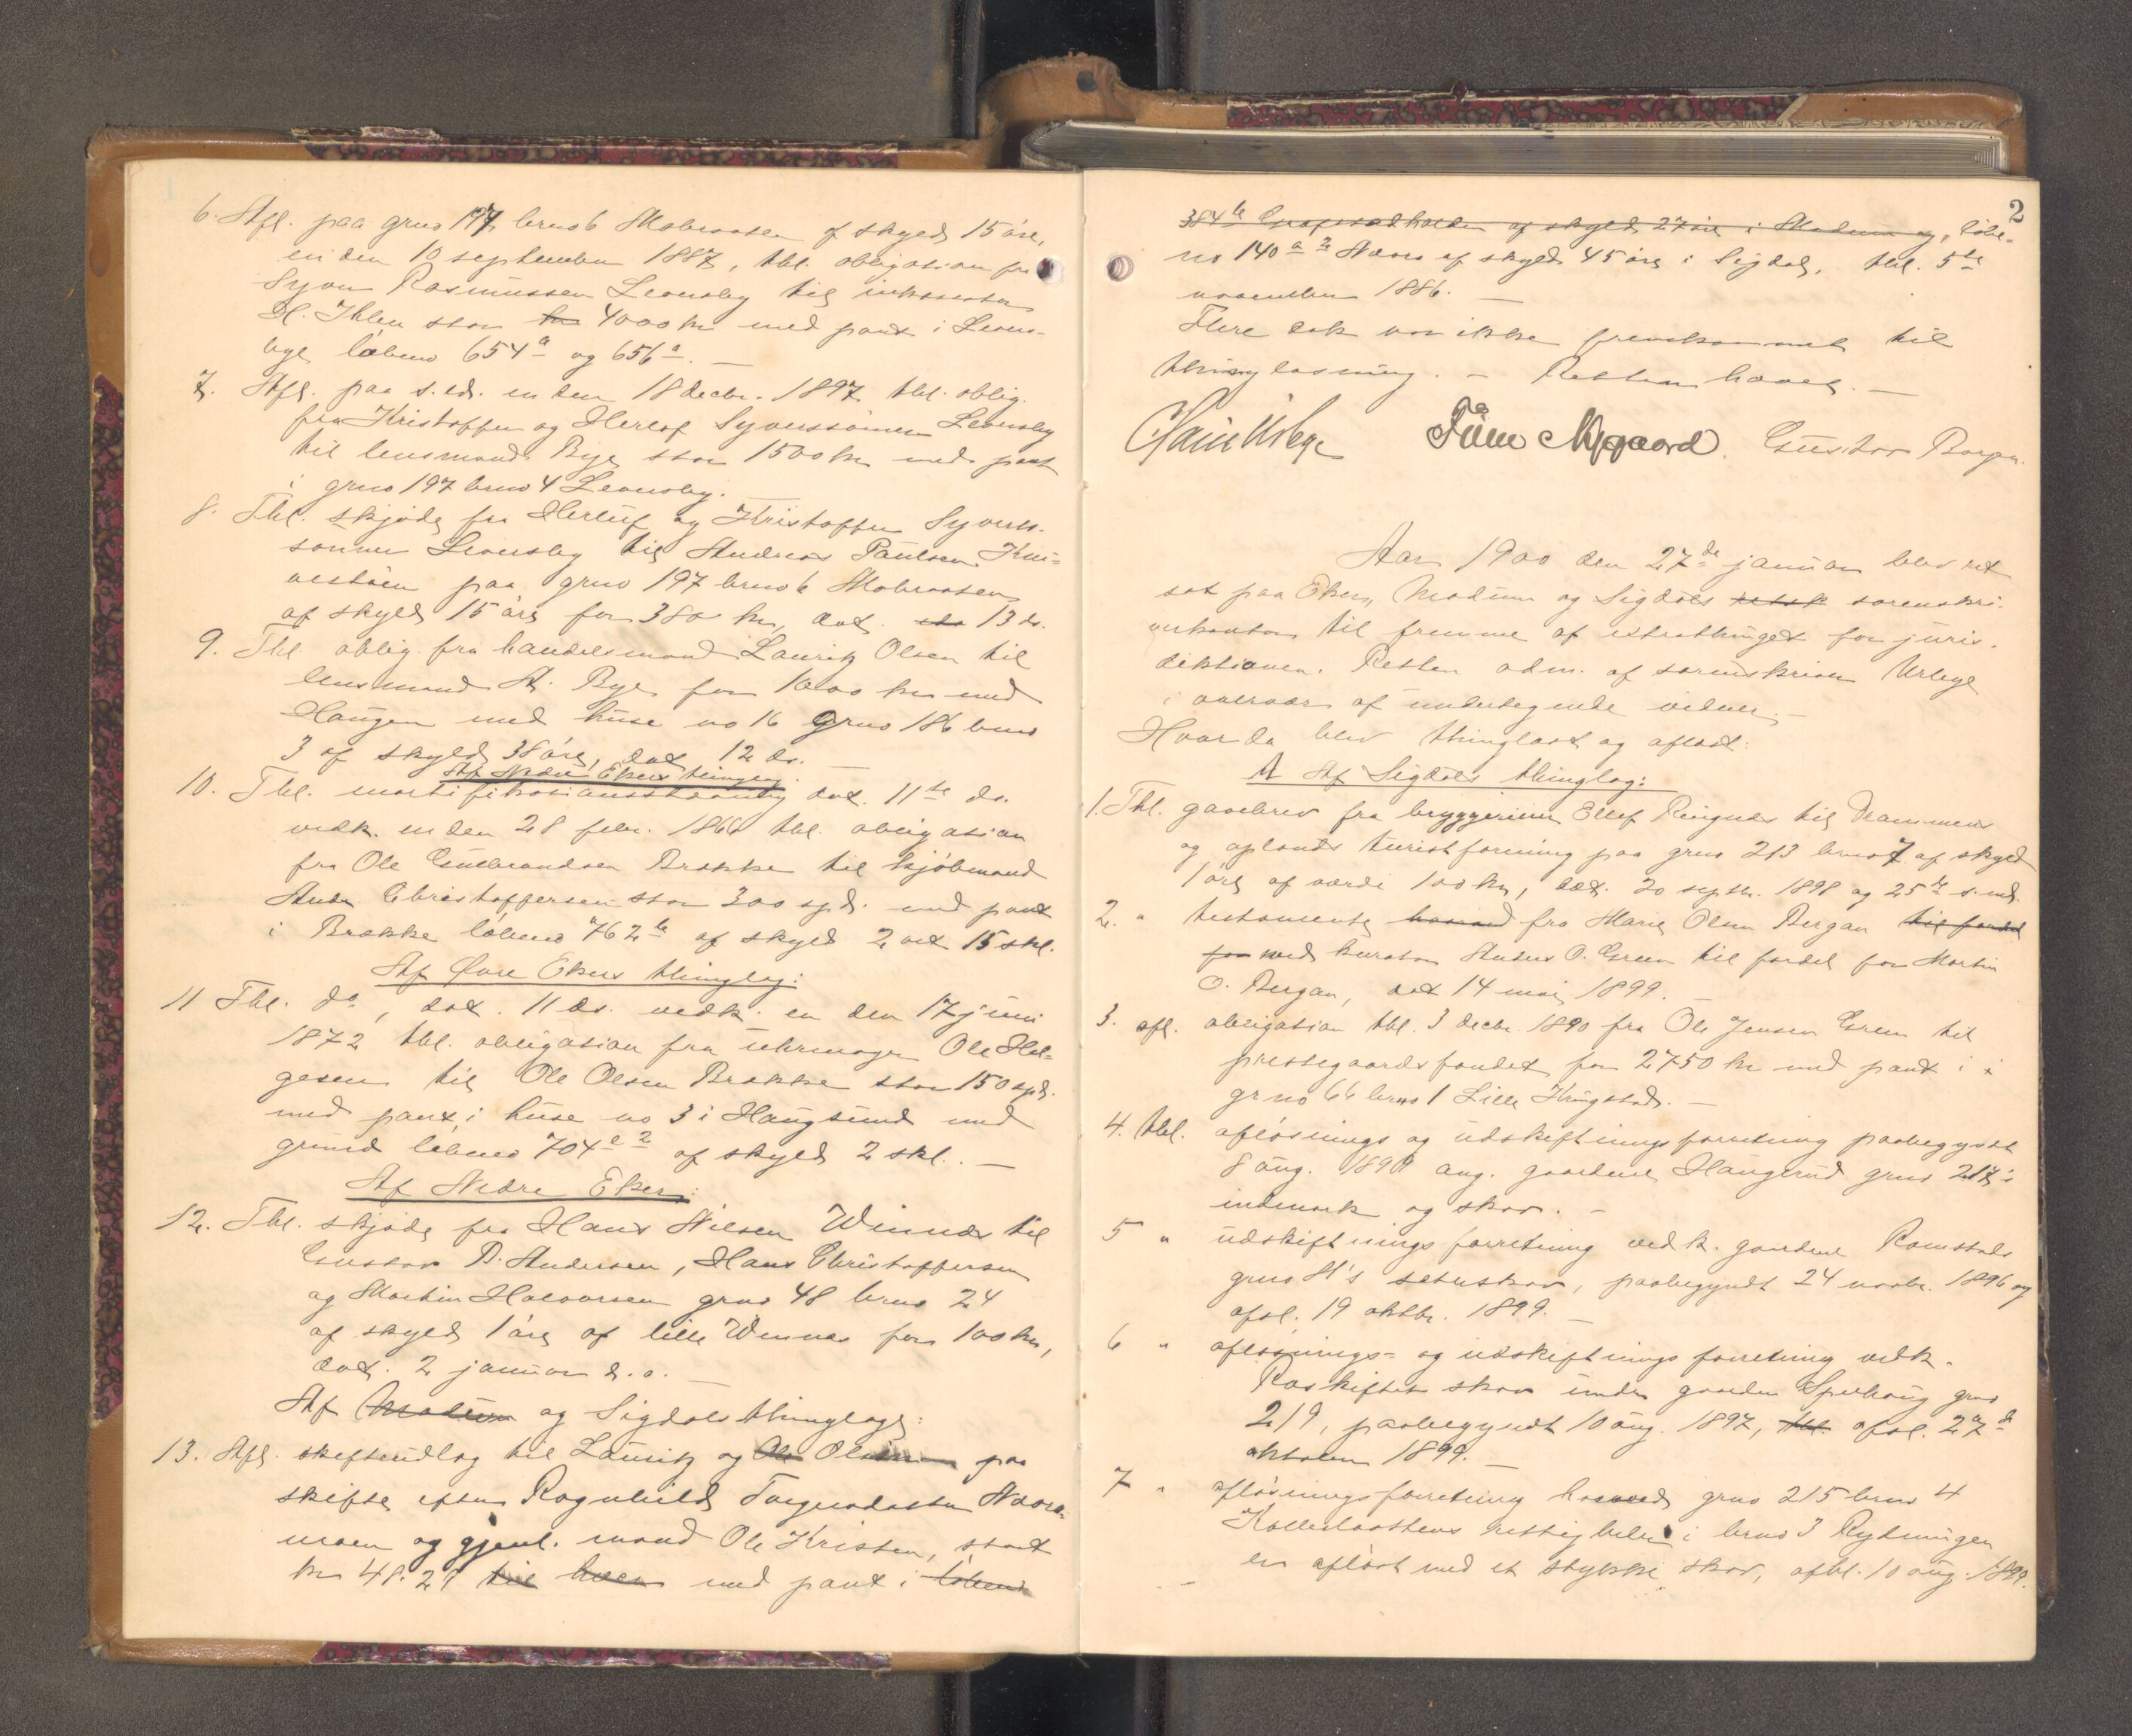 6. Afl. paa grno 197 brno 6 Mobraaten af skyld 15 øre,
en den 10 september 1887, tbl. obligation fra
Syver Rasmussen Leersby til inkassator
H. Ihlen stor for 4000 kr med pant i Leers-
bye løbeno 654a og 656a. —
7. Afl. paa s. ed. en den 18 decbr. 1897 tbl. oblig.
fra Kristoffer og Herlof Syverssønner Leersby
til lensmand Bye stor 1500 kr med pant
i grno 197 brno 4 Leersby.
8. Tbl. skjøde fra Herluf og Kristoffer Syvers-
sønner Leersby til Andreas Paulsen
paa grno 197 brno 6 Mobraaten
af skyld 15 øre for 380 kr, dat. 13 ds.
9. Tbl. oblig. fra handelsmand Lauritz Olsen til
lensmand A. Bye for 1000 kr med
Haugen med huse no 16 grno 186 brno
3 af skyld 38 øre, dat 12 ds. —
Af Nedre Ekers thinglag.
10. Tbl. mortifikationsstævning dat. 11te ds.
vedk. en den 28 febr. 1866 tbl. obligation
fra Ole Gulbrandsen Brække til kjøbmand
Anders Christoffersen stor 300 spd. med pant
i Brække løbeno 762b af skyld 2 ort 15 skl.
Af Øvre Ekers thinglag:
11 Tbl. do, dat. 11 ds. vedk. en den 17 juni
1872 tbl. obligation fra uhrmager Ole Hel-
gesen til Ole Olsen Brække stor 150 spd.
med pant i huse no 3 i Haugsund med
grund løbeno 704e2 af skyld 2 skl. —
Af Nedre Eker:
12. Tbl. skjøde fra Hans Nilsen Winnæs til
Gustav B. Andersen, Hans Christoffersen
og Martin Halvorsen grno 48 brno 24
af skyld 1 øre af lille Winnæs for 100 kr,
dat. 2 januar d. a. —
Af Modum og Sigdals thinglag:
13. Afl. skifteudlæg til Lauritz og Ole Olsen paa
skifte efter Ragnhild Torgersdatter Næra-
moen og gjenl. mand Ole Kristen, stort
kr 48.21 til med pant i løbeno
2
384b af skyld 27 øre i Modum og, løbe-
no 140a2 Næra af skyld 45 øre i Sigdal, tbl. 5te
november 1886. —
Flere dok var ikke fremkommet til
thinglæsning. — Retten hævet. —
Urbye Nygaard. Gustav Borgen.
Aar 1900 den 27de januar blev ret
sat paa Eker, Modum og Sigdals sorenskri-
verkontor til fremme af extrathinget for juris-
diktionen. Retten adm. af sorenskriver Urbye
i overvær af undertegnede vidner. —
Hvor da blev thinglæst og aflæst:
A Af Sigdals thinglag:
1. Tbl. gavebrev fra bryggerieier Ellef Ringnes til Drammens
og oplands turistforening paa grno 213 brno 7 af skyld
1 øre af værdi 100 kr, dat. 20 septbr. 1898 og 25de s. md.
2. " testamente fra Marie Olsen Bergan til fordel
for med kurator Anders O. Green til fordel for Martin
O. Bergan, dat 14 mai 1899. —
3. afl. obligation tbl. 3 decbr. 1890 fra Ole Jensen Green til
præstegaardsfondet for 2750 kr med pant i
gr no 66 brno 1 Lille Kringstad. —
4. tbl. afløsnings og udskiftningsforretning paabegyndt
8 aug. 1898 ang. gaardene Haugerud grno 217's
indmark og skov. —
5 " udskiftningsforretning vedk. gaardene Ramstads
grno sæterskov, paabegyndt 24 novbr. 1896 og
afsl. 19 oktbr. 1899. —
6 " afløsnings- og udskiftningsforretning vedk.
Raskiftets skov under gaarden Sperhaug grno
219, paabegyndt 10 aug. 1897, tbl. afsl. 27de
oktober 1899. —
7 " afløsningsforretning hvorved grno 215 brno 4
rettigheder i brno 3 Rydningen
er afløst med et stykke skov, afhl. 10 aug. 1899.